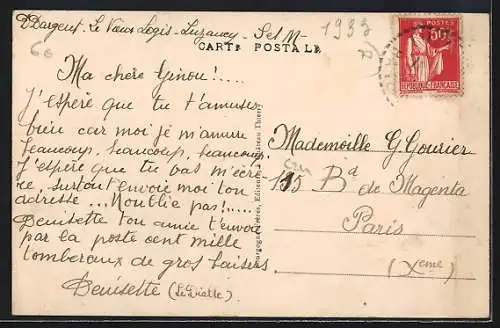 D Dargent. Le Vieux Logis - Luzancy - Set M -
1933
66
CARTE POSTALE
POSTES
50c
REPUBLIQUE FRANÇAISE
Ma chere Ginou!....
J'espère que tu t'amuses
bien car moi je m'amuse
beaucoup, beaucoup, beaucoup.
J'espère que tu vas m'écri
re, surtout envoie moi ton
adresse ... N'oublie pas!.....
Denisette ton amie t'envoie
par la poste cent mille
tombereaux de gros baisers
Denisette (Le Diable).
Bourgogne Frères, Editeurs à Château Thierry
Mademoiselle G. Gourier
115 Bd de Magenta
Paris
(Xeme)